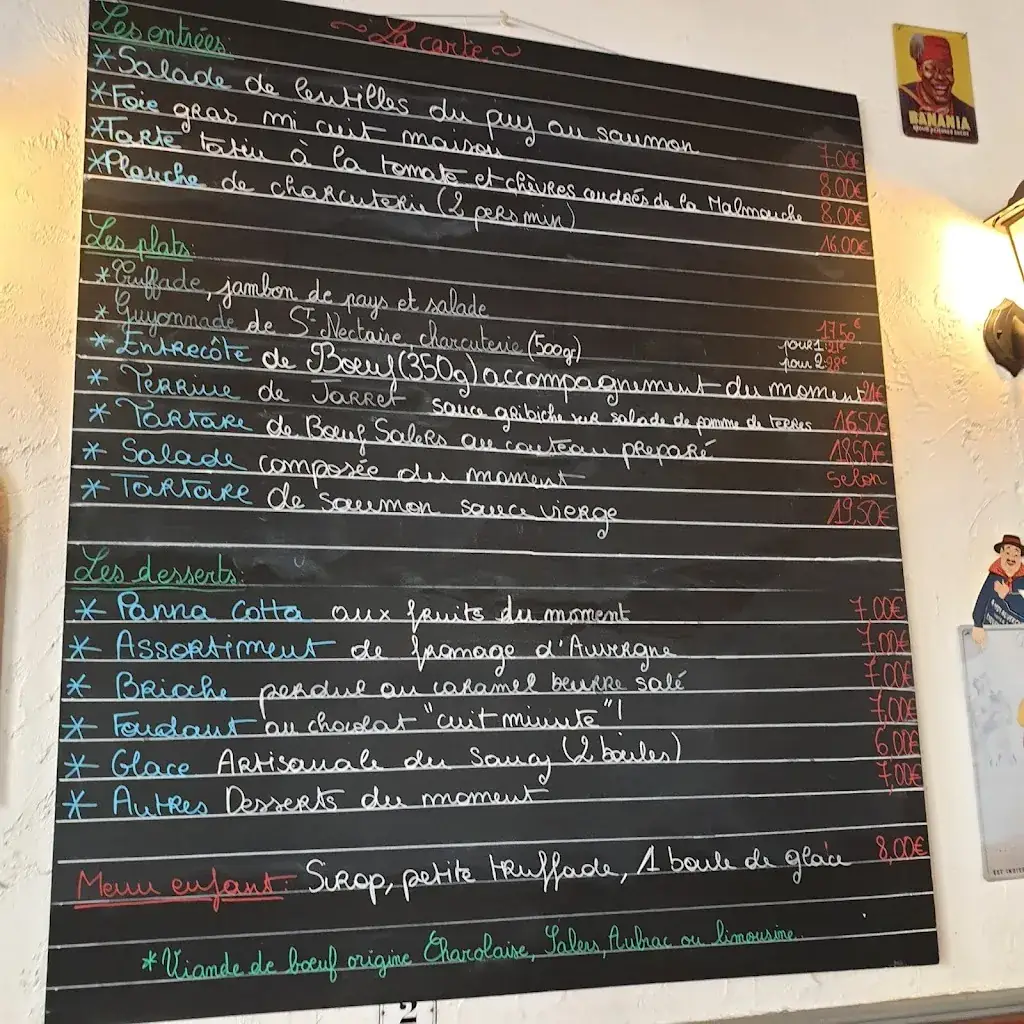 ~ La carte ~
Les entrées:
*Salade de lentilles du puy au saumon 7.00€
*Foie gras mi cuit maison 8.00€
*Tarte tatin à la tomate et chèvres cendrés de la Malmouche 8.00€
*Planche de charcuterie (2 pers min) 16.00€
Les plats:
*Truffade, jambon de pays et salade 17.50€
*Guyonnade de St-Nectaire, charcuterie (500gr) pour 1:21€
pour 2:38€
* Entrecôte de Boeuf (350g) accompagnement du moment 21€
* Terrine de Jarret sauce gribiche sur salade de pomme de terres 16.50€
* Tartare de Boeuf Salers au couteau preparé 18.50€
* Salade composée du moment Selon
* Tartare de saumon sauce vierge 19,50€
Les desserts:
* Panna Cotta aux fruits du moment 7.00€
* Assortiment de fromage d'Auvergne 7.00€
* Brioche perdue au caramel beurre salé 7.00€
* Fondant au chocolat "cuit minute"! 7,00€
* Glace Artisanale du Sancy (2 boules) 6.00€
* Autres Desserts du moment 7,00€
Menu enfant: Sirop, petite truffade, 1 boule de glace 8,00€
*Viande de boeuf origine Charolaise, Salers, Aubrac ou limousine.
BANANIA
2